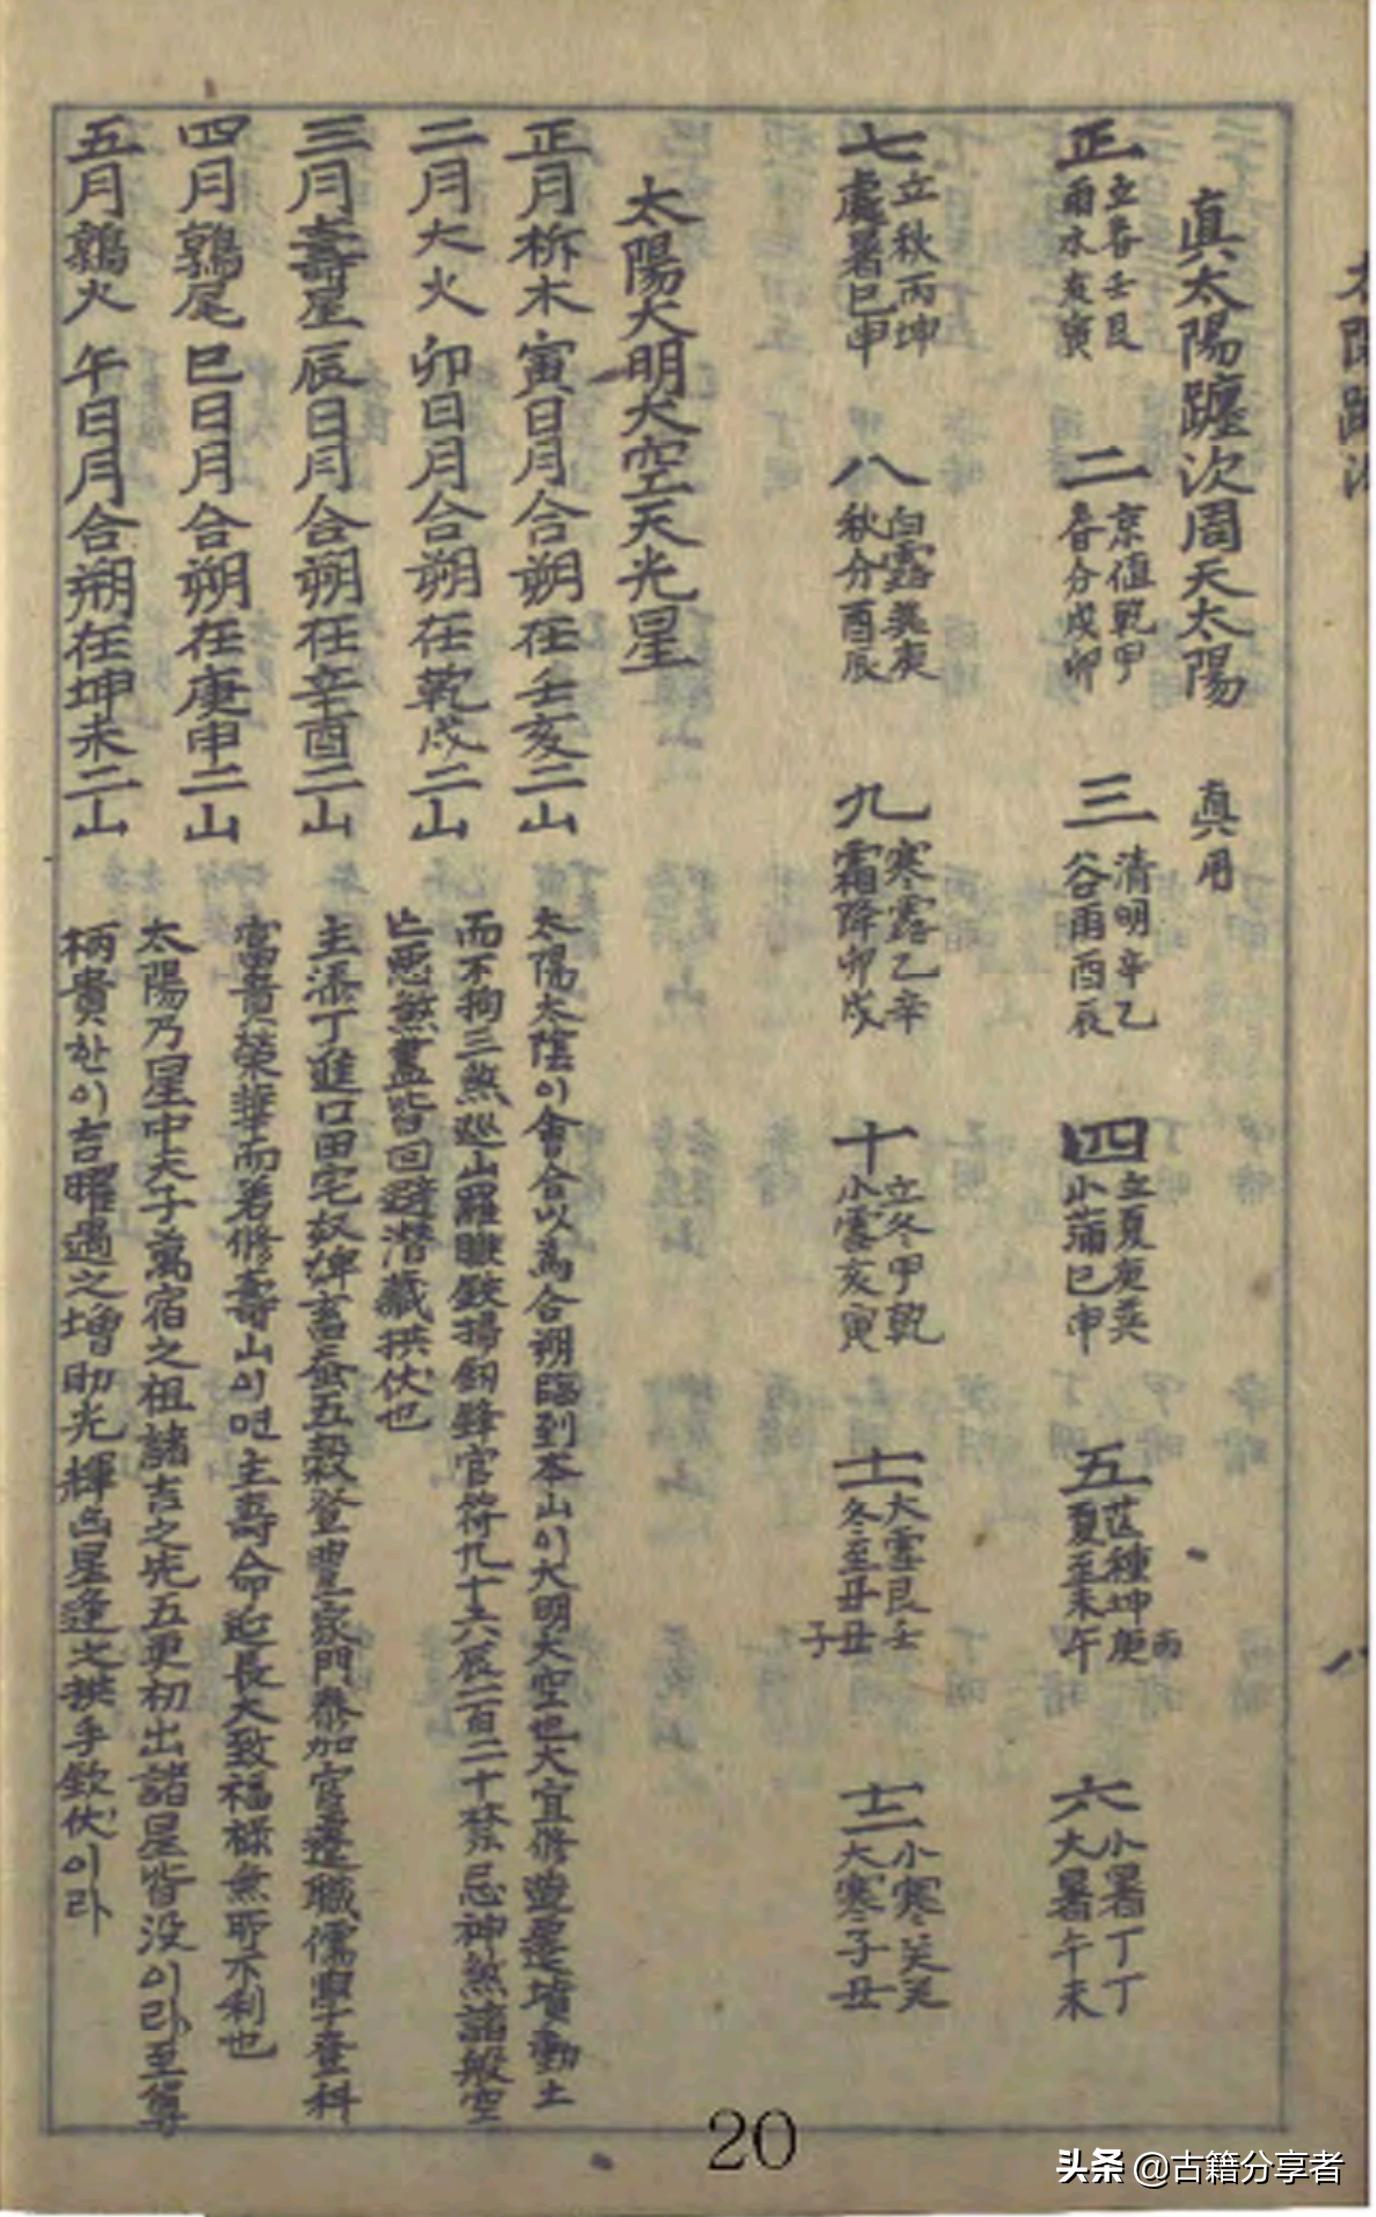 眞太陽躔次周天太陽 眞用
正 立春壬艮 雨水亥寅
二 京值乾甲 春分戌卯
三 清明辛乙 谷雨酉辰
四 立夏庚巽 小滿巳申
五 芒種坤庚丙 夏至未午
六 小暑丁丁 大暑午未
七 立秋丙坤 處暑巳申
八 白露巽庚 秋分酉辰
九 寒露乙辛 霜降卯戌
十 立冬甲乾 小雪亥寅
十一 大雪艮壬 冬至丑子
十二 小寒癸癸 大寒子丑
太陽大明大空天光星
正月柝木 寅日月合朔在壬亥二山
太陽太陰이會合以爲合朔臨到本山이大明大空也大宜修造遷墳動土
二月大火 卯日月合朔在乾戌二山
而不拘三煞巡山羅睺鈇掃劍鋒官符九十六辰二百二十禁忌神煞諸般空
亡惡煞盡皆回避潛藏拱伏也
三月壽星 辰日月合朔在辛酉二山
主添丁進口田宅奴婢畜蚕五穀登豊家門泰加官遷職儒學登科
四月鶉尾 巳日月合朔在庚申二山
富貴榮華而若修壽山이면主壽命延長大致福祿無所不利也
太陽乃星中天子萬宿之祖諸吉之先五更初出諸星皆没이라至尊
五月鶉火 午日月合朔在坤未二山
柄貴한이吉曜遇之增助光輝凶星逢之拱手欽伏이라
20
头条 @古籍分享者